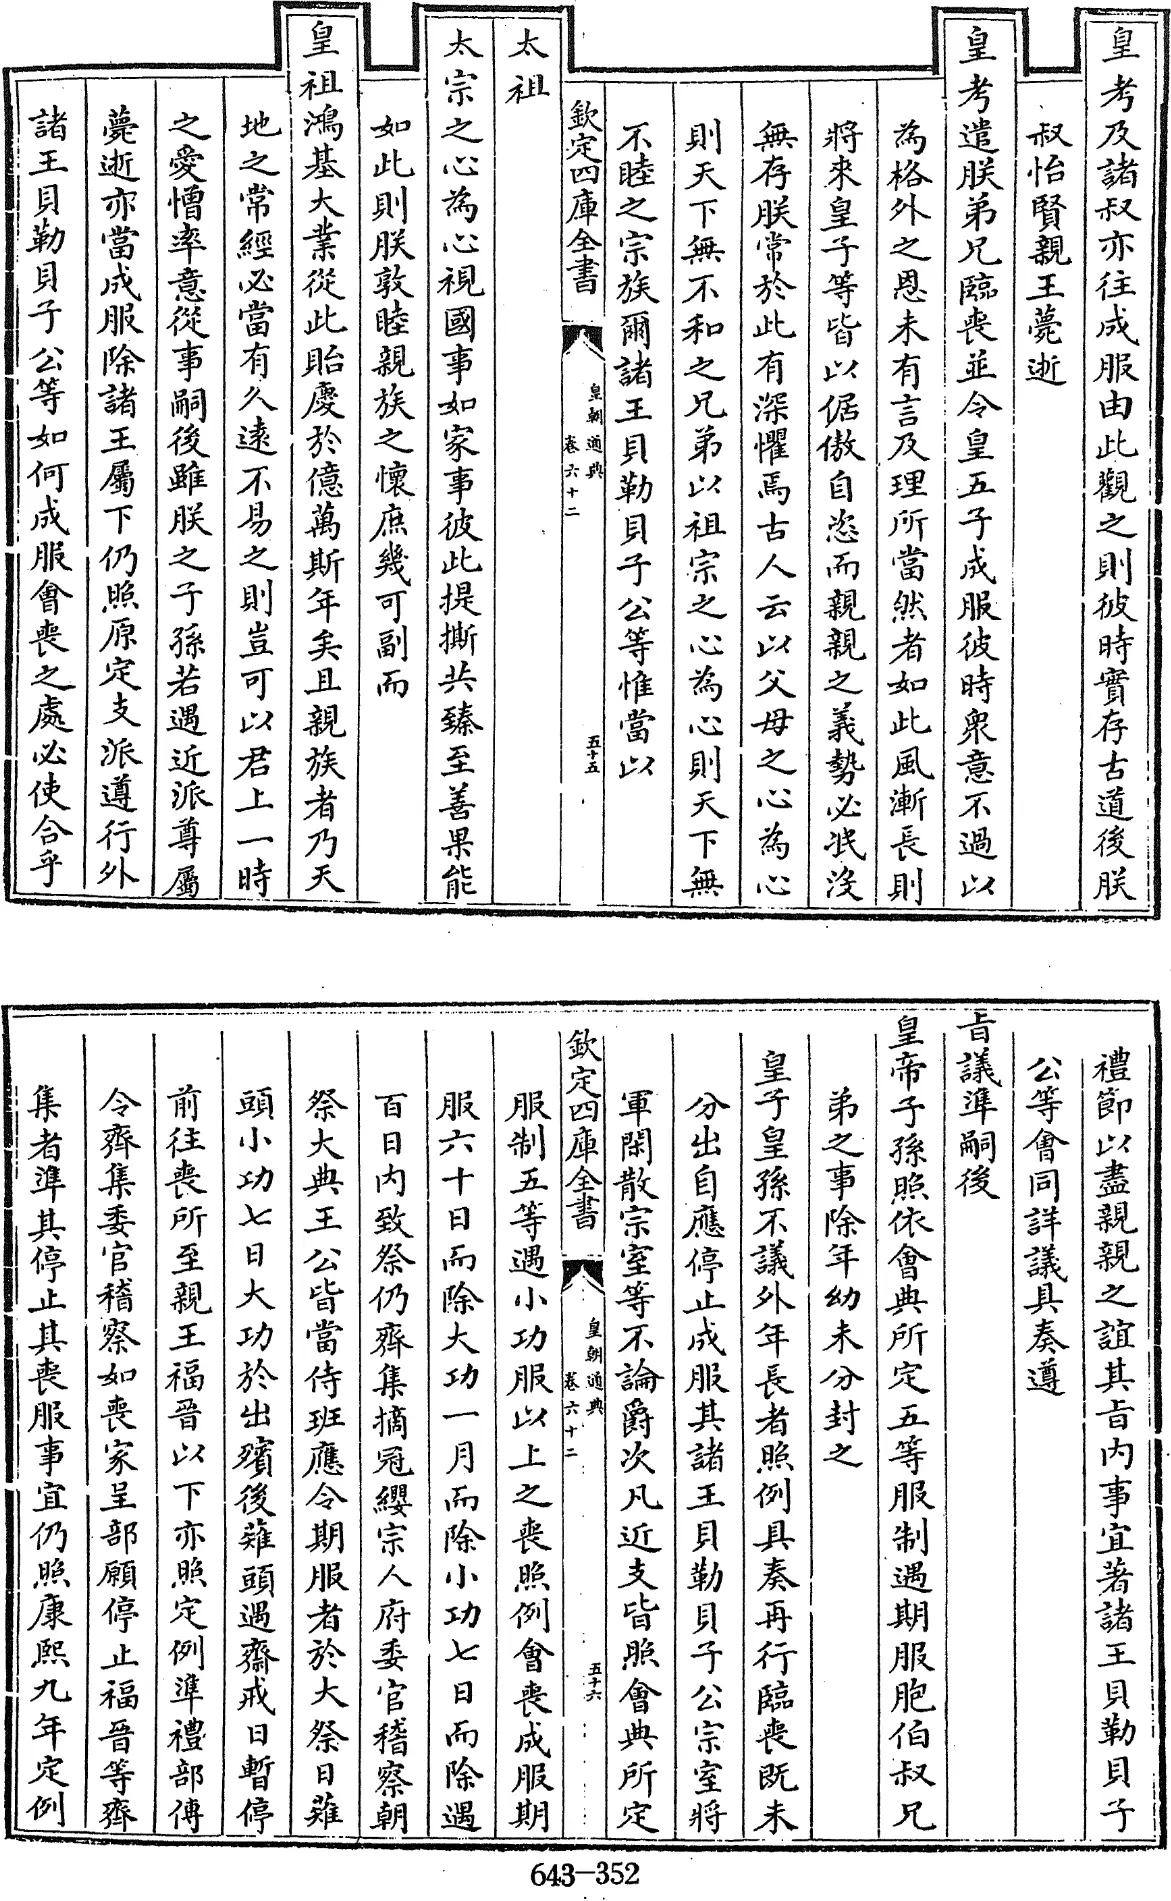 皇考及諸叔亦往成服由此觀之則彼時實存古道後朕
叔怡賢親王薨逝
皇考遣朕弟兄臨喪並令皇五子成服彼時衆意不過以
為格外之恩未有言及理所當然者如此風漸長則
將來皇子等皆以倨傲自恣而親親之義勢必泯沒
無存朕常於此有深懼焉古人云以父母之心為心
則天下無不和之兄弟以祖宗之心為心則天下無
不睦之宗族爾諸王貝勒貝子公等惟當以
欽定四庫全書
皇朝通典
卷六十二
五十五
太祖
太宗之心為心視國事如家事彼此提撕共臻至善果能
如此則朕敦睦親族之懷庶幾可副而
皇祖鴻基大業從此貽慶於億萬斯年矣且親族者乃天
地之常經必當有久遠不易之則豈可以君上一時
之愛憎率意從事嗣後雖朕之子孫若遇近派尊屬
薨逝亦當成服除諸王屬下仍照原定支派遵行外
諸王貝勒貝子公等如何成服會喪之處必使合乎
禮節以盡親親之誼其㫖内事宜著諸王貝勒貝子
公等會同詳議具奏遵
㫖議準嗣後
皇帝子孫照依會典所定五等服制遇期服胞伯叔兄
弟之事除年幼未分封之
皇子皇孫不議外年長者照例具奏再行臨喪既未
分出自應停止成服其諸王貝勒貝子公宗室將
軍閑散宗室等不論爵次凡近支皆照會典所定
欽定四庫全書
皇朝通典
卷六十二
五十六
服制五等遇小功服以上之喪照例會喪成服期
服六十日而除大功一月而除小功七日而除遇
百日内致祭仍齊集摘冠纓宗人府委官稽察朝
祭大典王公皆當侍班應令期服者於大祭日薙
頭小功七日大功於出殯後薙頭遇齋戒日暫停
前往喪所至親王福晉以下亦照定例準禮部傳
令齊集委官稽察如喪家呈部願停止福晉等齊
集者準其停止其喪服事宜仍照康熙九年定例
643-352